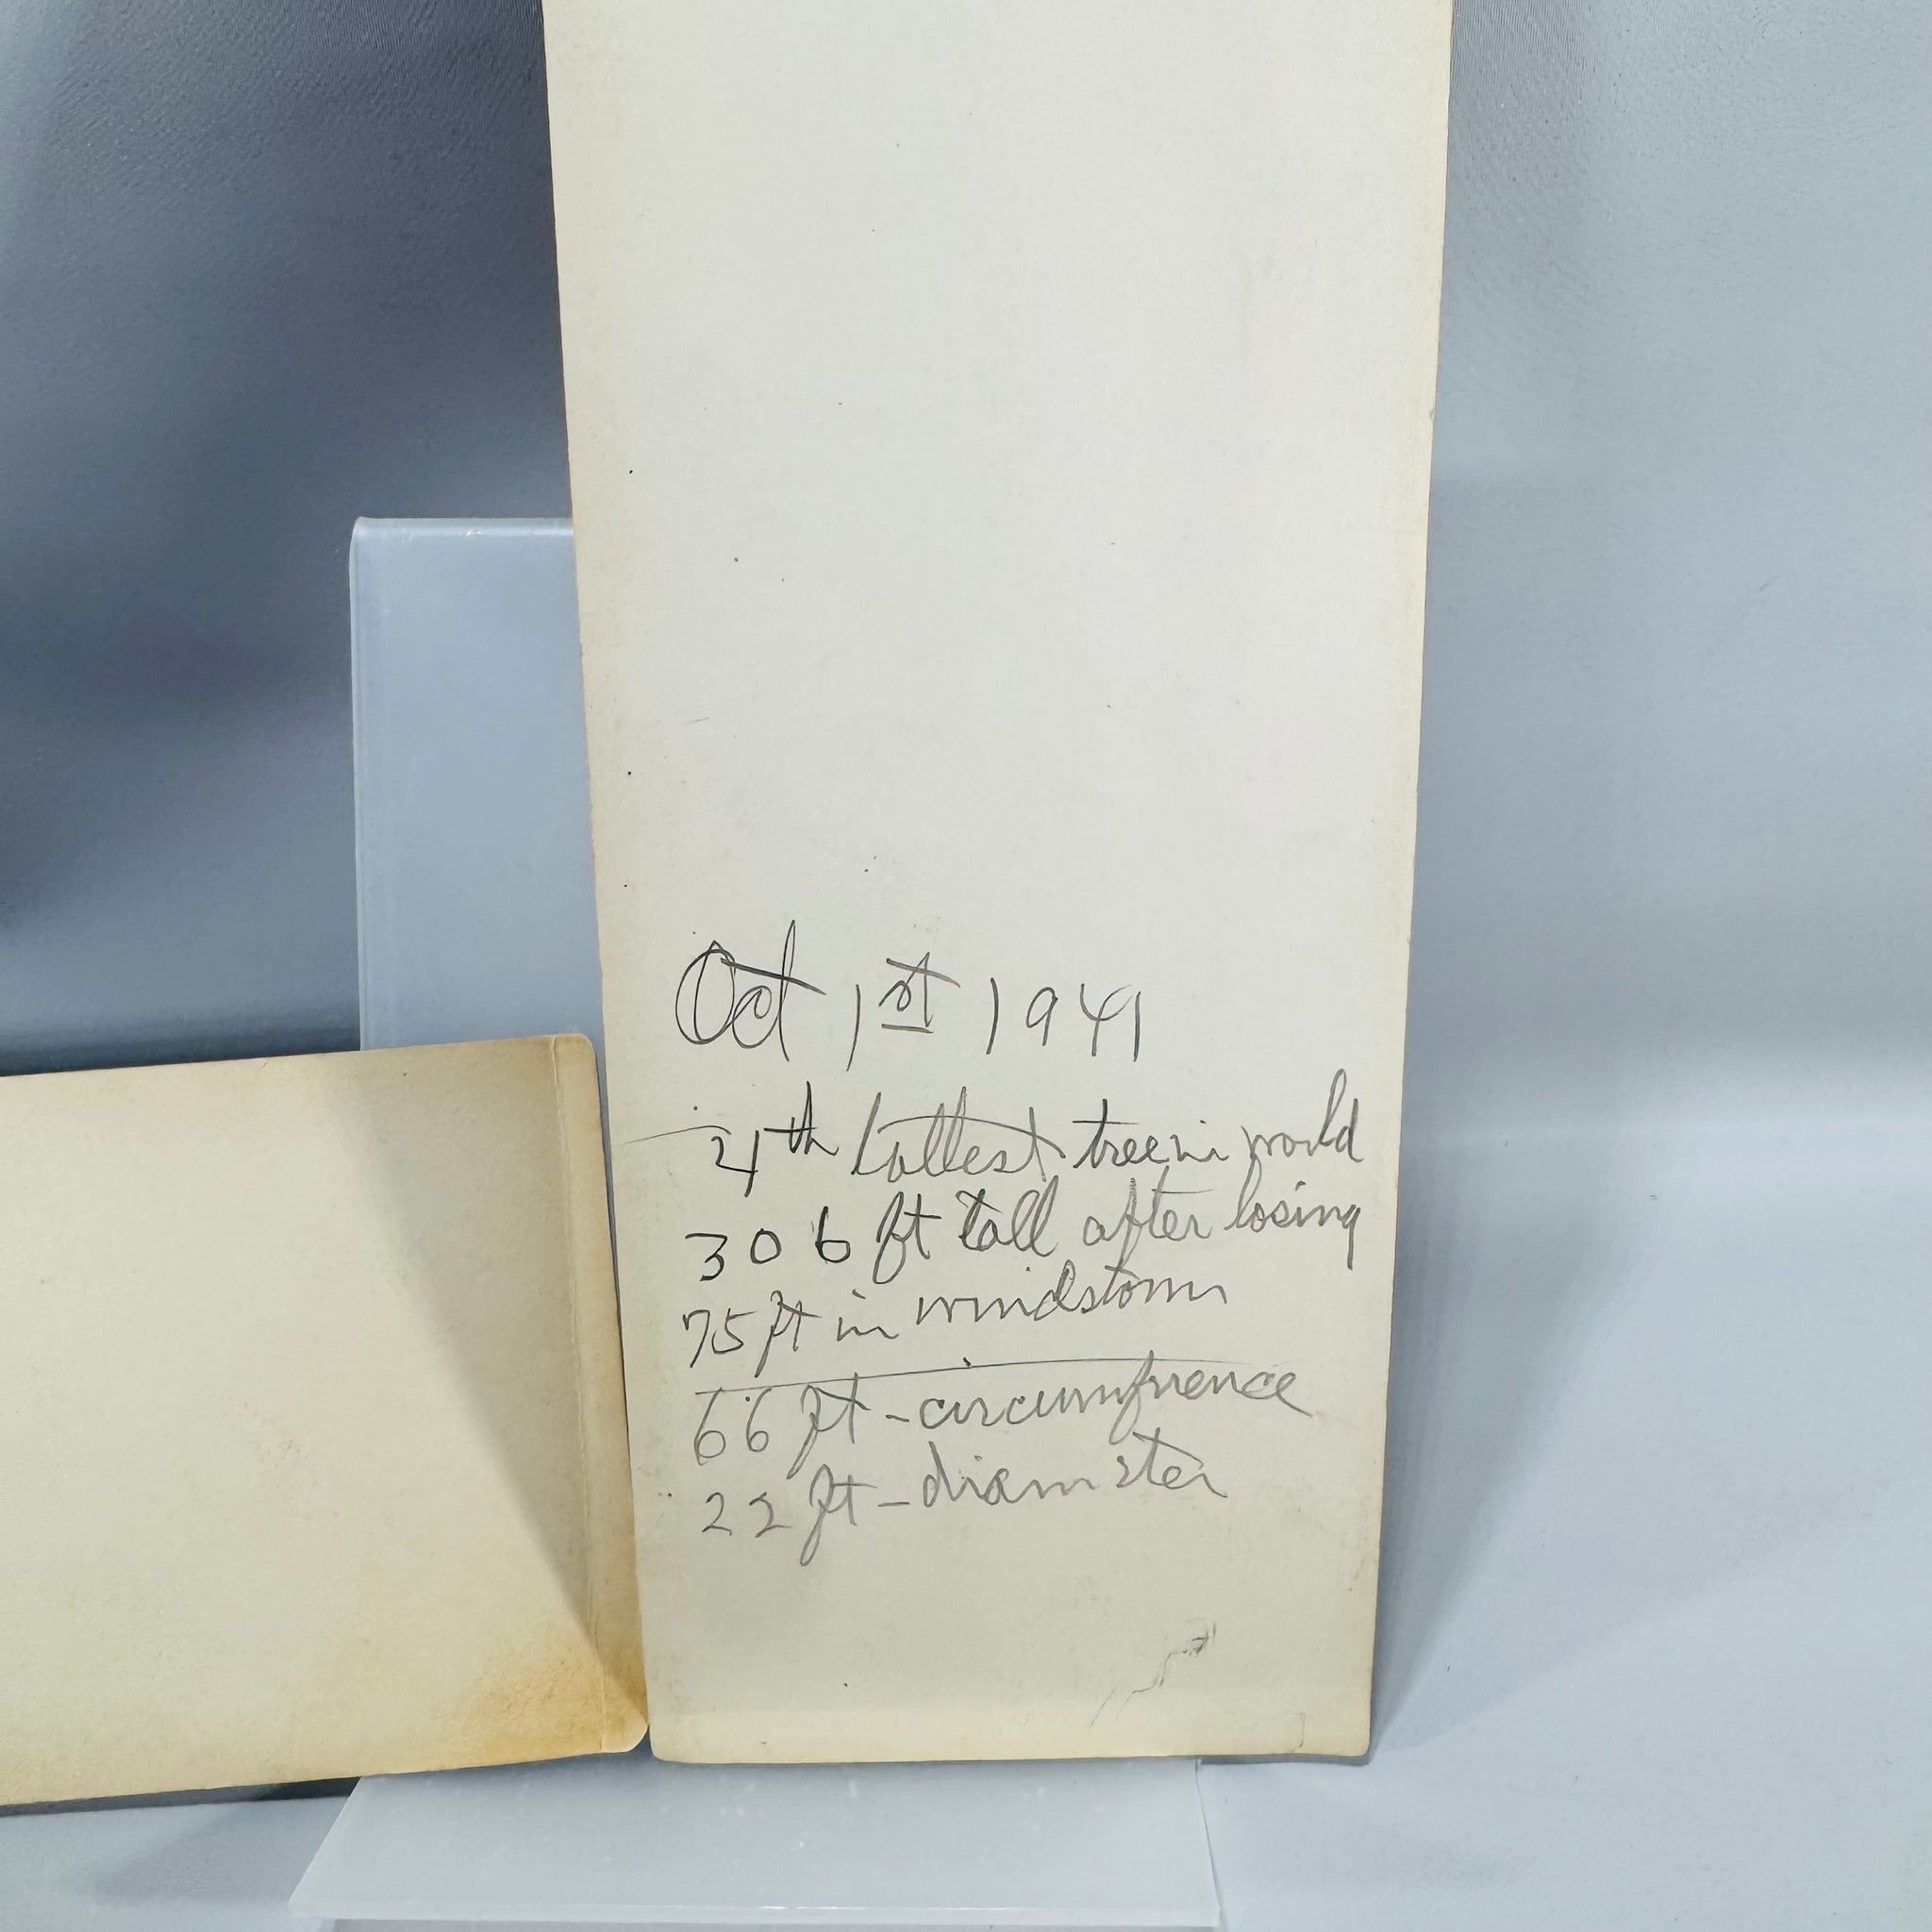 Oct 1st 1941
4th tallest tree in world
306 ft tall after losing
75 ft in windstorm
66 ft - circumfrence
22 ft - diameter